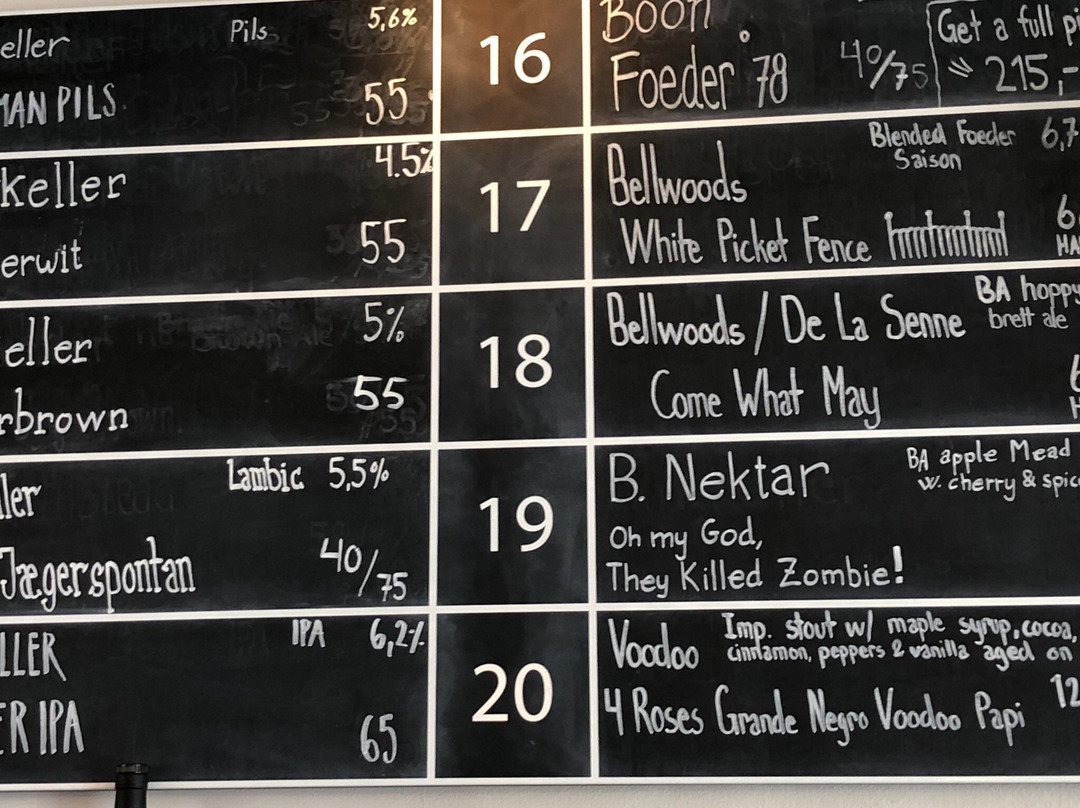 eller Pils 5,6%
MAN PILS 55
keller 4.5%
erwit 55
eller 5%
rbrown 55
ller Lambic 5,5%
Jægerspontan 40/75
LLER IPA 6,2%
ER IPA 65
16
17
18
19
20
Boon
Foeder 78 40/75
Get a full pi
215,-
Bellwoods Blended Foeder 6,7
Saison
White Picket Fence 6
HA
Bellwoods / De La Senne BA hoppy
brett ale
Come What May 6
H
B. Nektar BA apple Mead
w. cherry & spice
Oh my God,
They Killed Zombie!
Voodoo Imp. stout w/ maple syrup, cocoa,
cinnamon, peppers & vanilla aged on
4 Roses Grande Negro Voodoo Papi 12